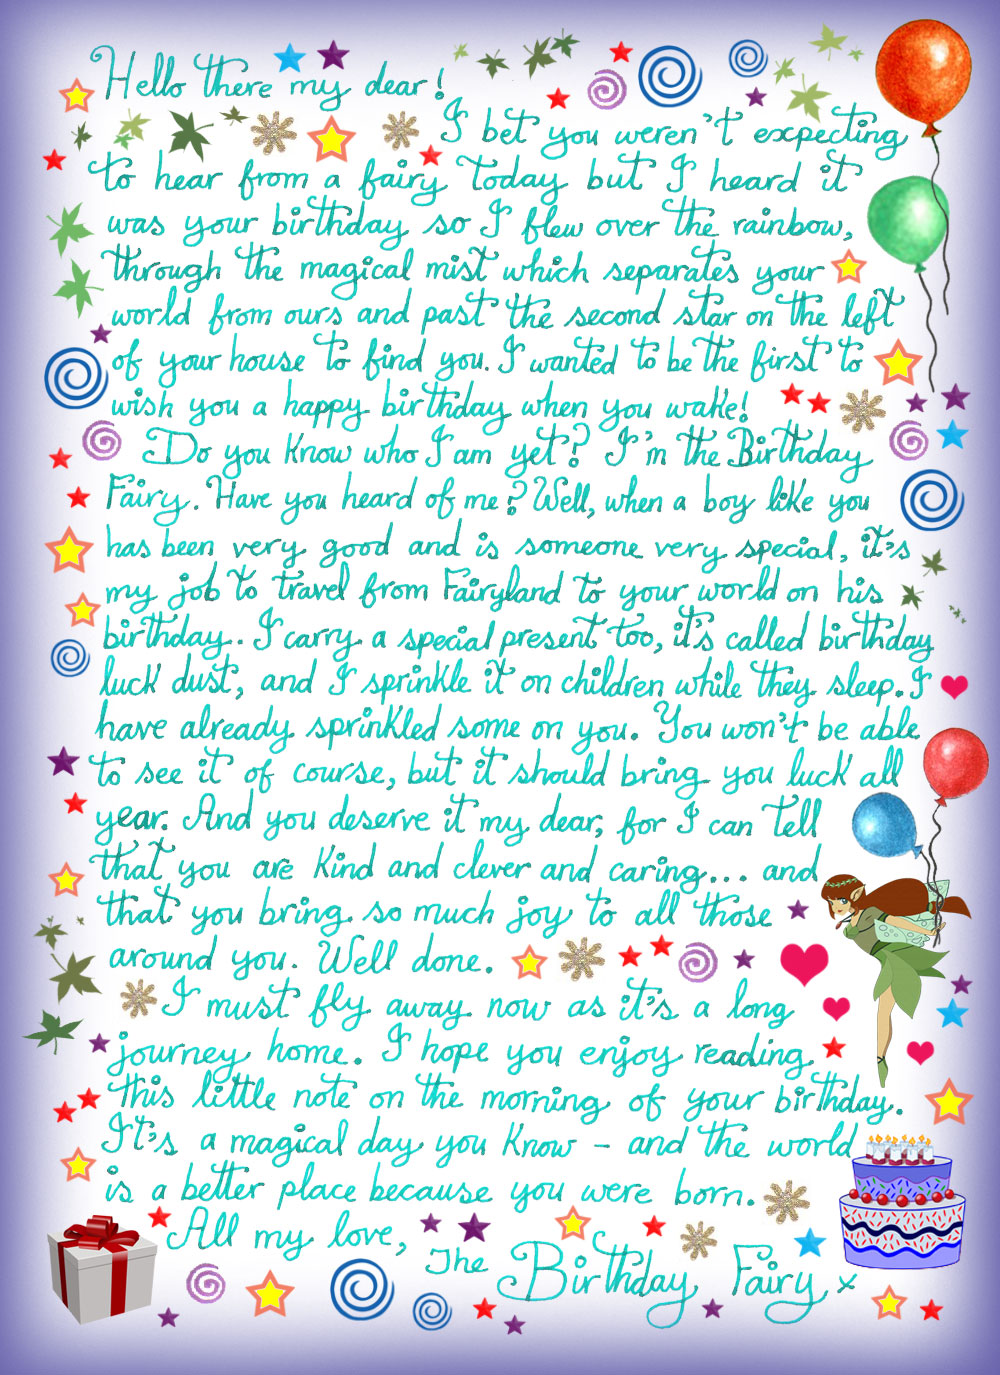 Hello there my dear!
I bet you weren't expecting
to hear from a fairy today but I heard it
was your birthday so I flew over the rainbow,
through the magical mist which separates your
world from ours and past the second star on the left
of your house to find you. I wanted to be the first to
wish you a happy birthday when you wake!
Do you know who I am yet? I'm the Birthday
Fairy. Have you heard of me? Well, when a boy like you
has been very good and is someone very special, it's
my job to travel from Fairyland to your world on his
birthday. I carry a special present too, it's called birthday
luck dust, and I sprinkle it on children while they sleep. I
have already sprinkled some on you. You won't be able
to see it of course, but it should bring you luck all
year. And you deserve it my dear, for I can tell
that you are kind and clever and caring... and
that you bring so much joy to all those
around you. Well done.
I must fly away now as it's a long
journey home. I hope you enjoy reading
this little note on the morning of your birthday.
It's a magical day you know - and the world
is a better place because you were born.
All my love,
The Birthday Fairy x